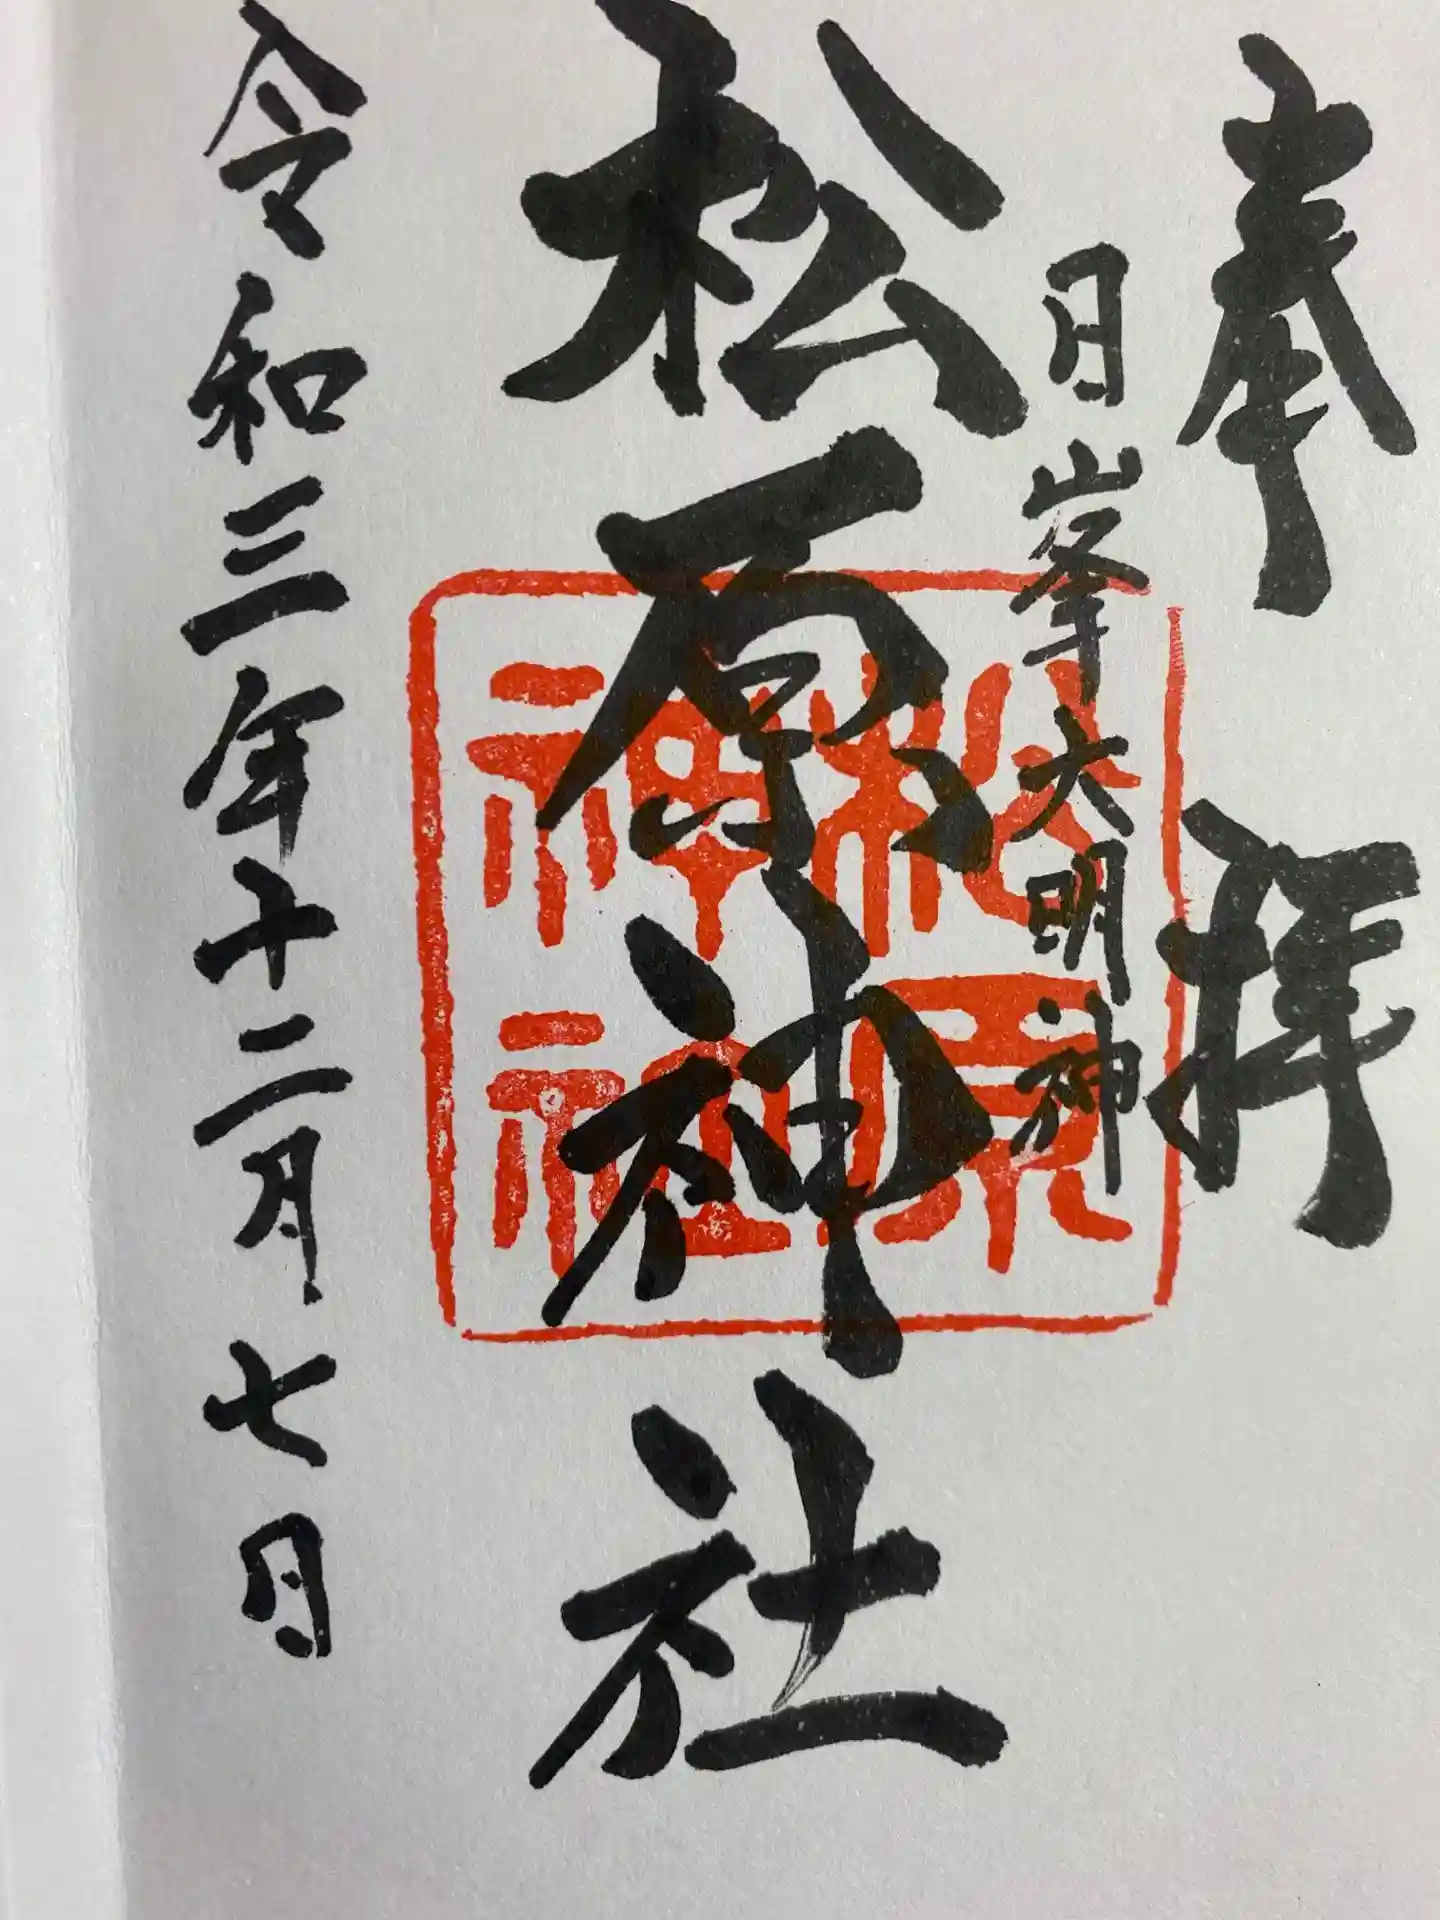 奉拝
日峯大明神
松原神社
松原神社
令和三年十二月七日